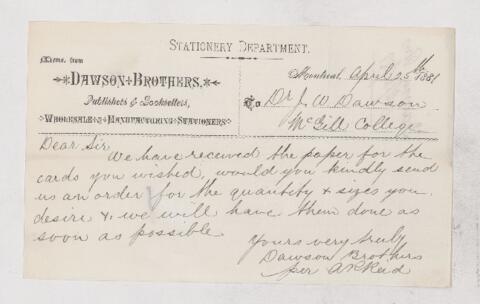 STATIONERY DEPARTMENT.
Memo. from
DAWSON BROTHERS,
Publishers & Booksellers,
WHOLESALE AND MANUFACTURING STATIONERS
Montreal, April 25th 1881
To Dr J. W. Dawson
McGill College
Dear Sir
We have received the paper for the
cards you wished, would you kindly send
us an order for the quantity & sizes you
desire & we will have them done as
soon as possible
Yours very truly
Dawson Brothers
per A. Reid